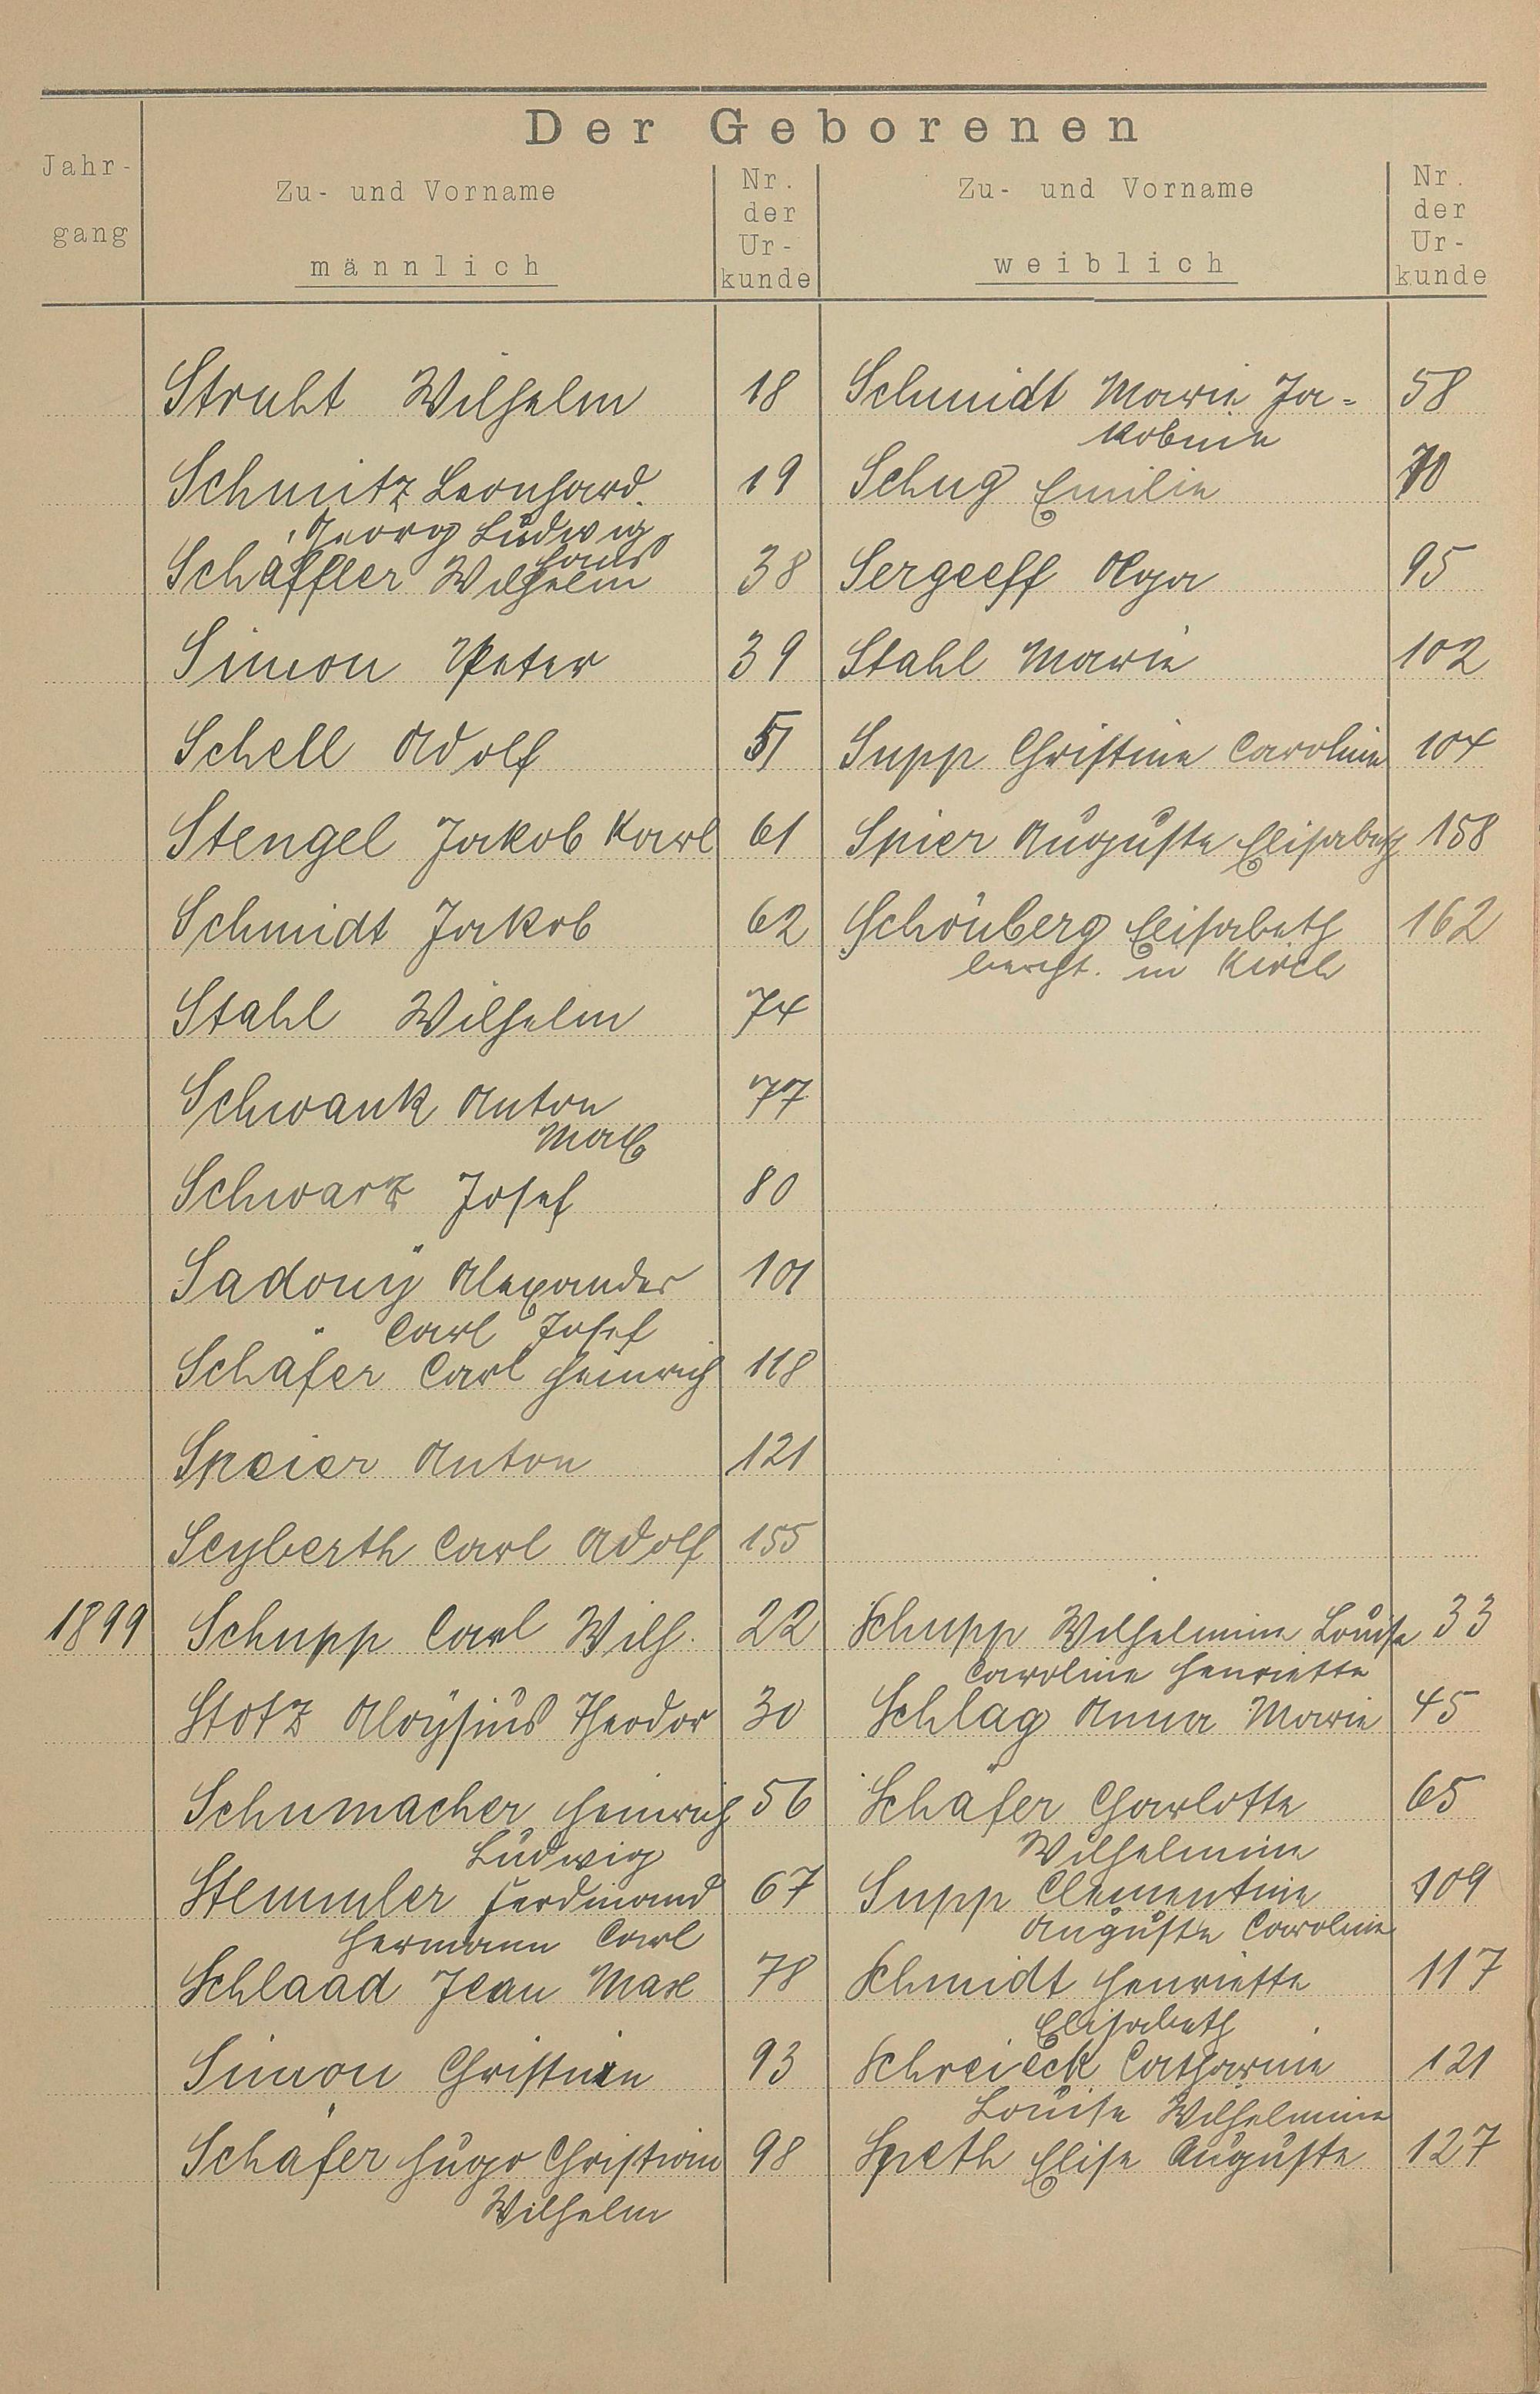 Der Geborenen
Jahr-
gang
Zu- und Vorname
männlich
Nr.
der
Ur-
kunde
Zu- und Vorname
weiblich
Nr.
der
Ur-
kunde
Struht Wilhelm 18 Schmidt Marie Ja= 58
kobine
Schmitz Leonhard 19 Schug Emilie 70
Georg Ludwig
Hans
Schäffler Wilhelm 38 Sergeeff Olga 95
Simon Peter 39 Stahl Marie 102
Schell Adolf 51 Supp Christine Caroline 104
Stengel Jakob Karl 61 Spier Auguste Elisabeth 158
Schmidt Jakob 62 Schönberg Elisabeth 162
in Kirch
Stahl Wilhelm 74
Schwank Anton 77
Max
Schwarz Josef 80
Sadony Alexander 101
Carl Josef
Schäfer Carl Heinrich 118
Speier Anton 121
Seyberth Carl Adolf 155
1899 Schupp Carl Wilh. 22 Schupp Wilhelmine Louise 33
Caroline Henriette
Stotz Aloÿsius Theodor 30 Schlag Anna Marie 45
Schumacher Heinrich 56 Schäfer Charlotte 65
Ludwig Wilhelmine
Stemmler Ferdinand 67 Supp Clementine 109
Hermann Carl Auguste Caroline
Schlaad Jean Max 78 Schmidt Henriette 117
Elisabeth
Simon Christian 93 Schreieck Catharine 121
Louise Wilhelmine
Schäfer Hugo Christian 98 Speth Elise Auguste 127
Wilhelm